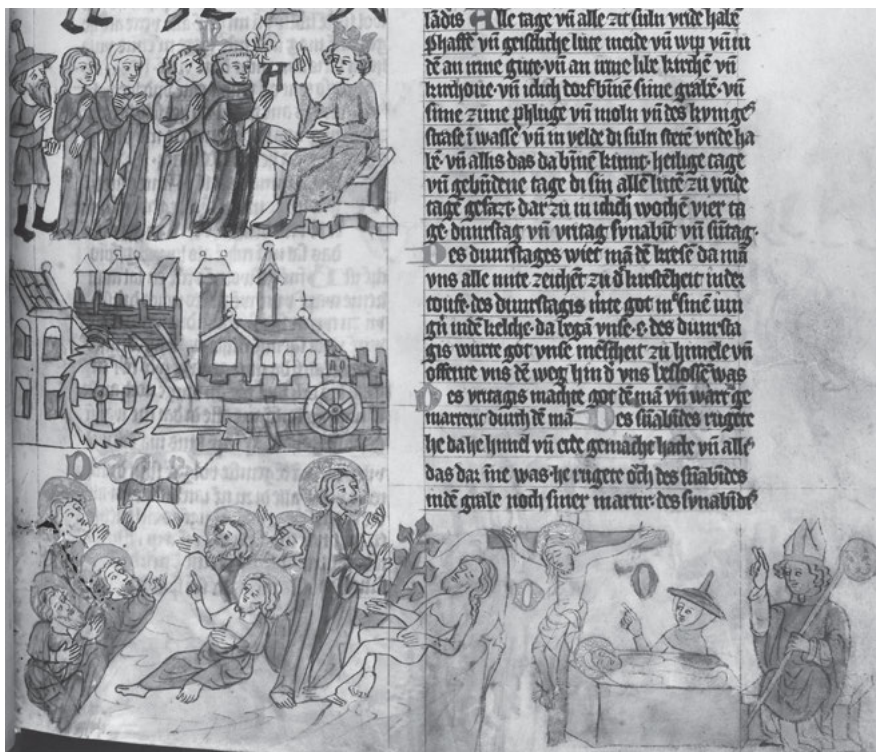 ladis Alle tage vn̄ alle zit suln vride habē
phaffē vn̄ geistliche lute meide vn̄ wip vn̄ iu
dē an irme gute· vn̄ an irme libe kirchē vn̄
kirchoue· vn̄ iclich dorf bīnē sime grabē· vn̄
sime zune phluge vn̄ moln vn̄ des kvnige
strase ī wassē vn̄ in velde di suln stete vride ha
bē· vn̄ allis das da bīnē kumt· heilige tage
vn̄ gebūdene tage di sin allē lutē zu vride
tagē gesazt· dar zu in iclich wochē vier ta
ge· dunrstag vn̄ vritag synabūt vn̄ sūtag·
Des dunrstages wiet mā dē kresē da mā
vns alle mite zeichēt zu d' kirstēheit in der
toufe· des dunrstagis got m' sinē iun
gn̄ in dē kelche· da begā vnse· e· des dunrsta
gis vurte got vnse mēscheit zu himele vn̄
offente vns dē weg hin d' vns beslossē was
Des vritagis machte got dē mā vn̄ wart ge
marterit durch dē mā Des sūabūdes rugete
he da he himel vn̄ erde gemachē hatte vn̄ alle
das dar īne was· he rugete och des sūabūdes
in dē grabe noch siner martir· des synabūdes